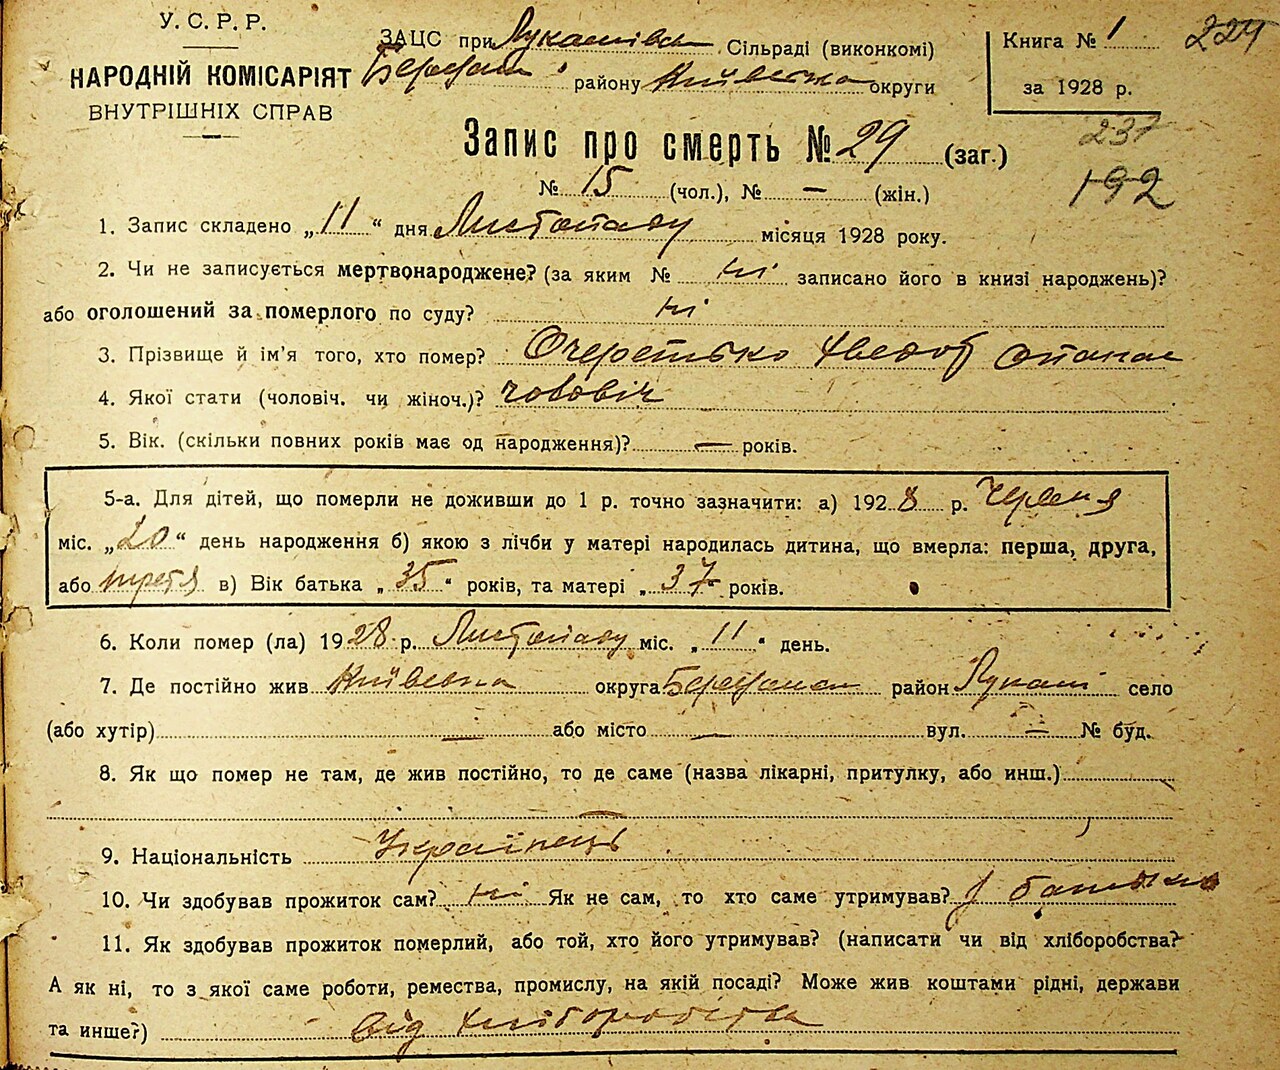 У. С. Р. Р.
НАРОДНІЙ КОМІСАРІЯТ
ВНУТРІШНІХ СПРАВ
ЗАЦС при Лукашівск Сільраді (виконкомі)
Березанс району Київська округи
Книга № 1
за 1928 р.
224
237
192
Запис про смерть № 29 (заг.)
№ 15 (чол.), № — (жін.)
1. Запис складено „11“ дня Листопаду місяця 1928 року.
2. Чи не записується мертвонароджене? (за яким № ні записано його в книзі народжень)?
або оголошений за померлого по суду? ні
3. Прізвище й ім'я того, хто помер? Очеретько Хведоб Опанас
4. Якої стати (чоловіч. чи жіноч.)? чоловіч
5. Вік. (скільки повних років має од народження)? — років.
5-а. Для дітей, що померли не доживши до 1 р. точно зазначити: а) 1928 р. Червня
міс. „20“ день народження б) якою з лічби у матері народилась дитина, що вмерла: перша, друга,
або третя в) Вік батька „35“ років, та матері „37“ років.
6. Коли помер (ла) 1928 р. Листопаду міс. „11“ день.
7. Де постійно жив Київська округа Березанск район Лукаші село
(або хутір) — або місто — вул. — № буд.
8. Як що помер не там, де жив постійно, то де саме (назва лікарні, притулку, або инш.)
—
9. Національність Українець
10. Чи здобував прожиток сам? ні Як не сам, то хто саме утримував? у батька
11. Як здобував прожиток померлий, або той, хто його утримував? (написати чи від хліборобства?
А як ні, то з якої саме роботи, ремества, промислу, на якій посаді? Може жив коштами рідні, держави
та инше?) від хліборобства